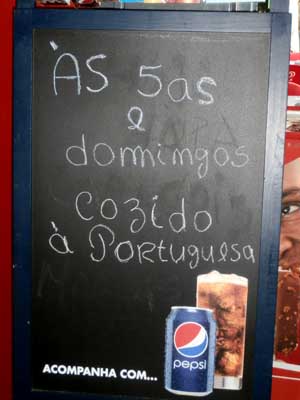 ÀS 5as
e
domingos
cozido
à PORTUGUESA
ACOMPANHA COM...
pepsi